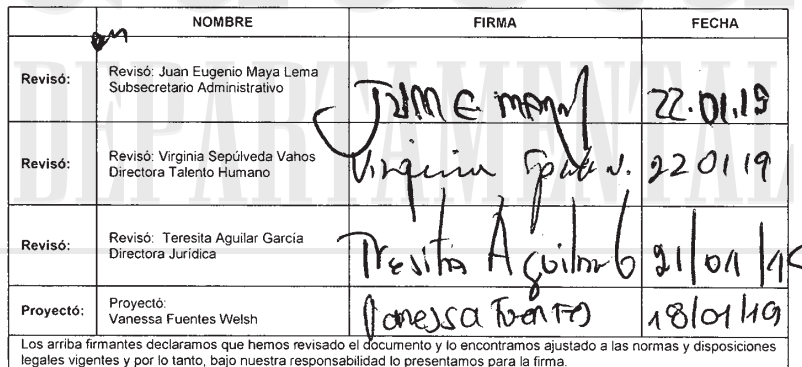 NOMBRE FIRMA FECHA
Revisó: Revisó: Juan Eugenio Maya Lema
Subsecretario Administrativo
22.01.19
Revisó: Revisó: Virginia Sepúlveda Vahos
Directora Talento Humano
Virginia 22 01 19
Revisó: Revisó: Teresita Aguilar García
Directora Jurídica
Teresita Aguilar G 21/01/19
Proyectó: Proyectó:
Vanessa Fuentes Welsh
Vanessa Fuentes 18/01/19
Los arriba firmantes declaramos que hemos revisado el documento y lo encontramos ajustado a las normas y disposiciones
legales vigentes y por lo tanto, bajo nuestra responsabilidad lo presentamos para la firma.
DEPARTAMENTAL